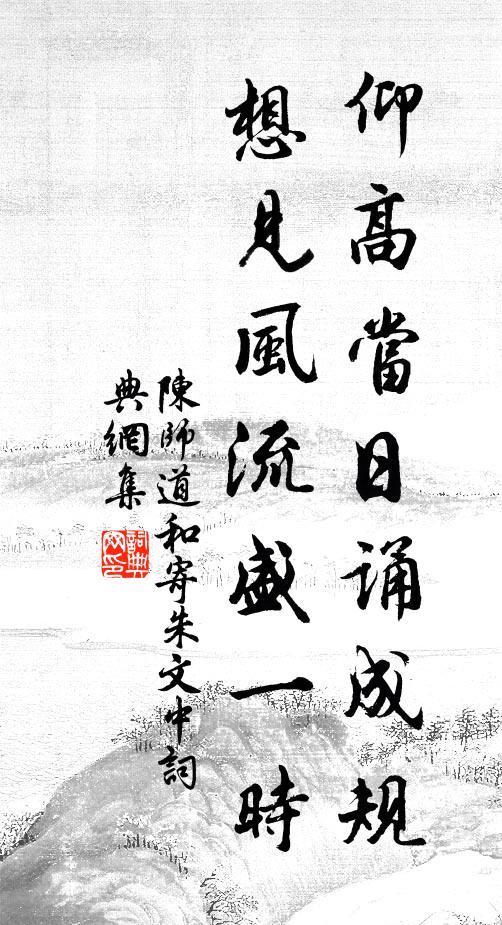 仰高當日誦成規
想見風流盛一時
陳師道和寄朱文中詞
典網集
詞典
网印